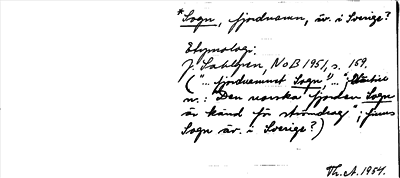 *Sogn, fjordnamn, äv. i Sverige?
Etymologi:
J. Sahlgren, NoB 1951, s. 159.
("... fjordnamnet Sogn" ... "
m.: "Den norska fjorden Sogn
är känd för strömdrag"; finns
Sogn äv. i Sverige?)
Th. A. 1954.